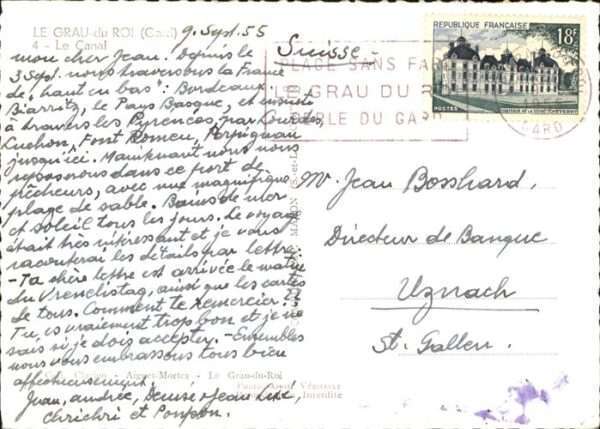 LE GRAU du ROI (Gard)
4 - Le Canal
9. Sept. 55
mon cher Jean. Depuis le
3 Sept. nous traversons la France
de "haut en bas": Bordeaux,
Biarritz, le Pays Basque, et ensuite
à travers les Pyrénées, par Lourdes,
Luchon, Font Romeu, Perpignan
jusqu'ici. Maintenant nous nous
reposons dans ce port de
pêcheurs, avec une magnifique
plage de sable. Bains de mer
et soleil tous les jours. Le voyage
était très intéressant et je vous
raconterai les détails par lettre.
- Ta chère lettre est arrivée le matin
du ainsi que les cartes
de tous. Comment te remercier ??
Tu es vraiment trop bon et je ne
sais si je dois accepter. - Ensembles
nous vous embrassons tous bien
affectueusement.
Jean, andrée, Denise + Jean
chrichri et Pompon.
Suisse
REPUBLIQUE FRANÇAISE
18F
POSTES
PLAGE SANS
LE GRAU DU R
SABLE DU GA
GARD
Mr Jean Bosshard,
Directeur de Banque
Uznach
St. Gallen.
MACON (S.-et-L.)
Aigues-Mortes - Le Grau-du-Roi
Interdite